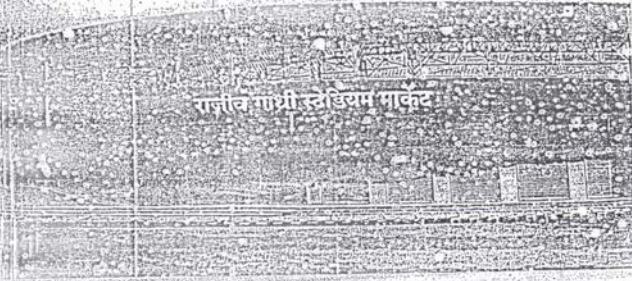 राजीव गांधी स्टेडियम मार्केट